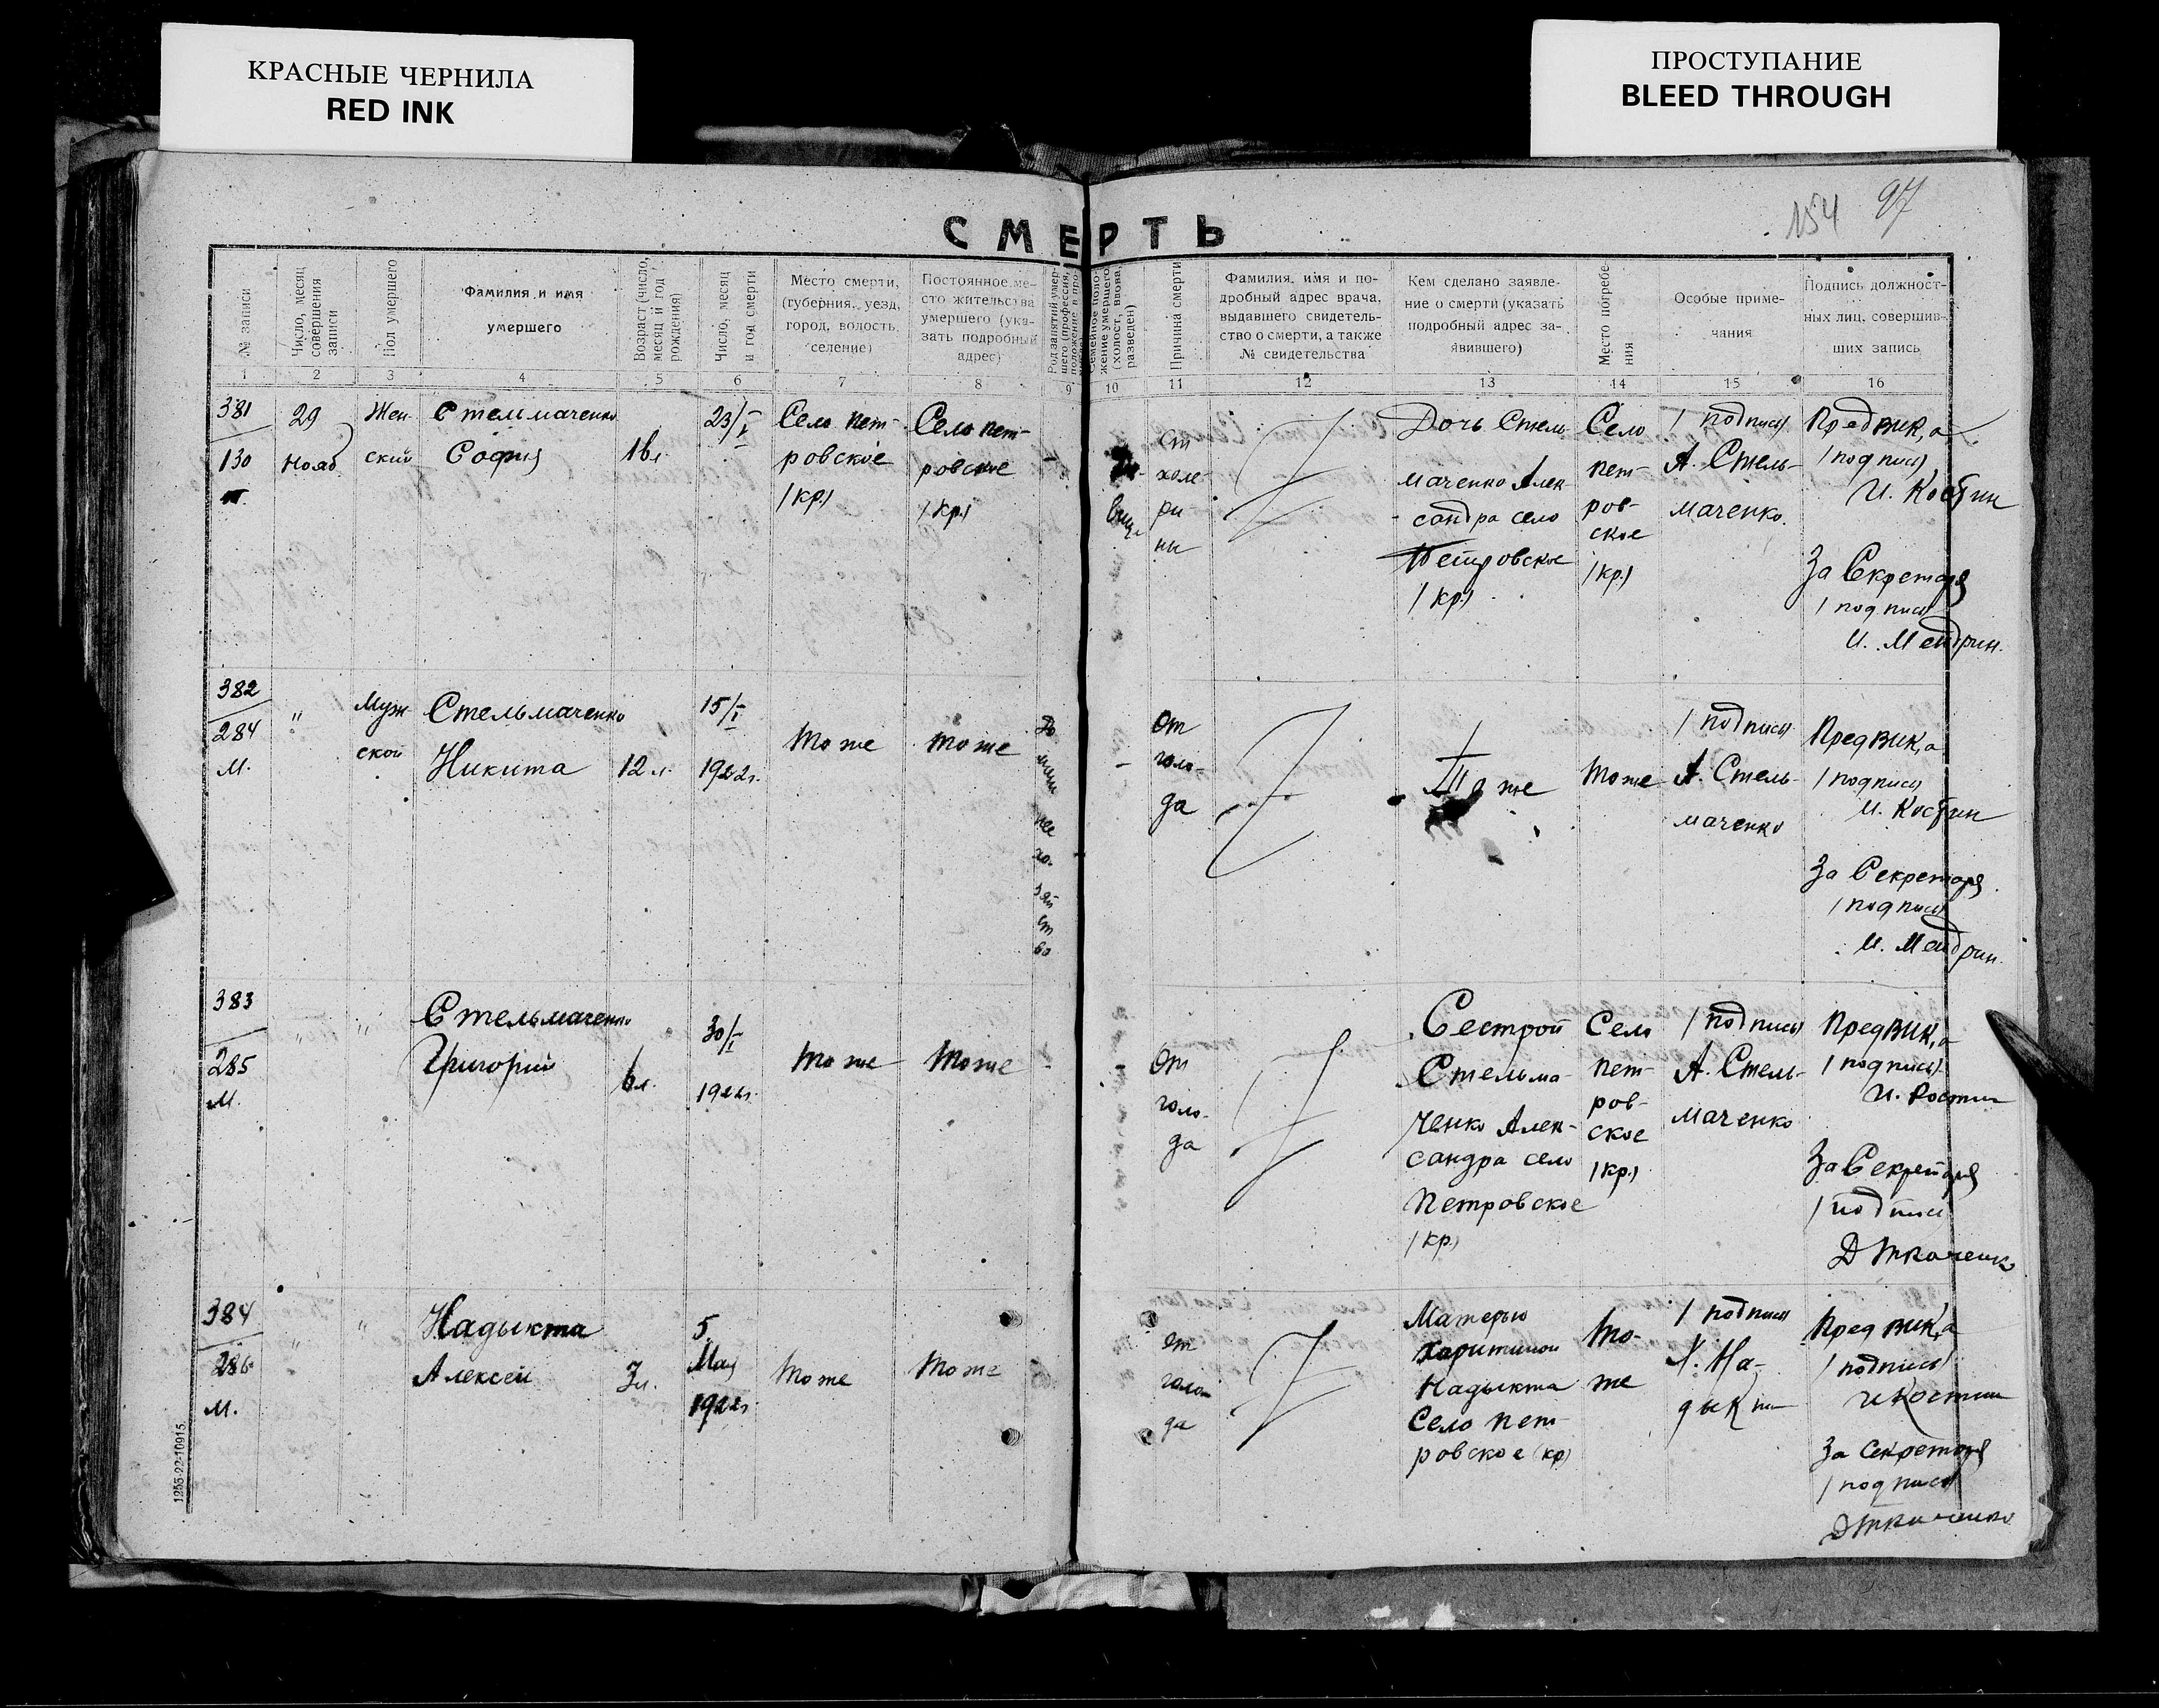 КРАСНЫЕ ЧЕРНИЛА
RED INK
ПРОСТУПАНИЕ
BLEED THROUGH
154 97
СМЕРТЬ
№ записи
Число, месяц совершения записи
Пол умершего
Фамилия и имя
умершего
Возраст (число, месяц и год рождения)
Число, месяц и год смерти
Место смерти,
(губерния, уезд,
город, волость,
селение)
Постоянное ме-
сто жительства
умершего (ука-
зать подробный
адрес)
Семейное поло-
жение умершего
(холост, вдова,
разведен)
Причина смерти
Фамилия, имя и по-
дробный адрес врача,
выдавшего свидетель-
ство о смерти, а также
№ свидетельства
Кем сделано заявле-
ние о смерти (указать
подробный адрес за-
явившего)
Место погребе-
ния
Особые приме-
чания
Подпись должност-
ных лиц, совершив-
ших запись
1 2 3 4 5 6 7 8 9 10 11 12 13 14 15 16
381
130
29
Нояб
Жен
ский
Стельмаченко
София
23/I
Село Пет-
ровское
/кр./
Село Пет-
ровское
/кр./
От
холе-
ри
ны
Дочь Стель
маченко Алек
сандра село
Петровское
/кр./
Село
Пет-
ров-
ское
/кр./
/подпись/
А. Стель-
маченко.
Предвик,а
/подпись/
И. Костин
За Секретаря
/подпись/
И. Мендрин.
382
284
м.
"
Муж
ской
Стельмаченко
Никита
12 л.
15/I
1922г.
тоже
тоже
До
маш
нее
хо-
зяй
ст
во
От
голо-
да
Тоже
тоже
/подпись/
А. Стель-
маченко
Предвик,а
/подпись/
И. Костин
За Секретаря
/подпись/
И. Мендрин.
383
285
м.
" "
Стельмаченко
Григорий
6л.
30/I
1922г.
тоже
тоже
От
голо-
да
Сестрой
Стельма-
ченко Алек-
сандра село
Петровское
/кр./
Село
Пет-
ров-
ское
/кр./
/подпись/
А. Стель-
маченко
Предвик,а
/подпись/
И. Костин
За Секретаря
/подпись/
Д Ткаченко
384
286
м.
" "
Надыкта
Алексей
3л.
5
Мая
1922г.
тоже
тоже
от
голо-
да
Матерью
Харитиной
Надыкта
Село Пет-
ровское (кр)
то-
же
/подпись/
Х. На-
дыкта
Предвик,а
/подпись/
И Костин
За Секретаря
/подпись/
Д Ткаченко
1255-22-10915.